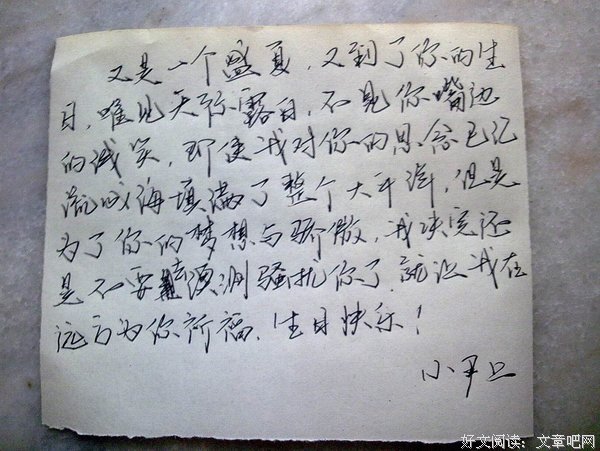 又是一个盛夏，又到了你的生
日，唯见天际露白，不见你嘴边
的浅笑，即使我对你的思念已泛
流成海填满了整个太平洋，但是
为了你的梦想与骄傲，我决定还
是不要去 骚扰你了，就让我在
远方为你祈福、生日快乐！
小尹
好文阅读：文章吧网